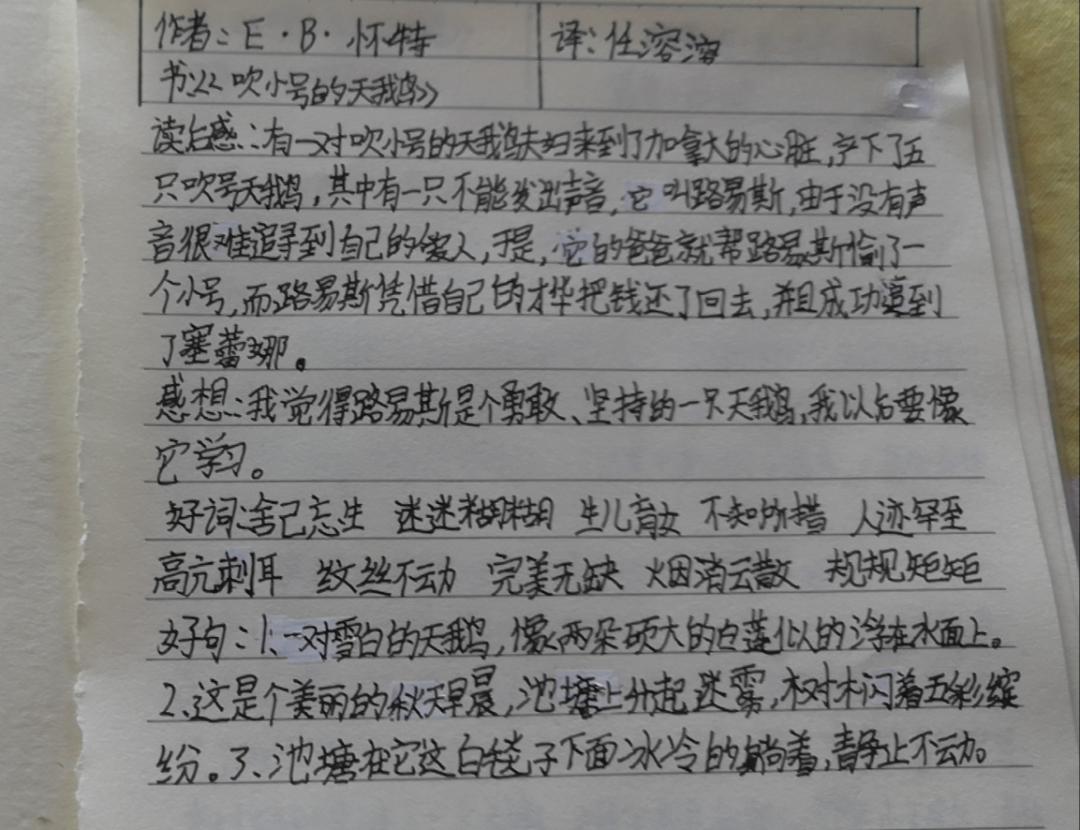 作者：E·B·怀特 译：任溶溶
书：《吹小号的天鹅》
读后感：有一对吹小号的天鹅夫妇来到了加拿大的心脏，产下了五
只吹号天鹅，其中有一只不能发出声音，它叫路易斯，由于没有声
音很难追寻到自己的爱人，于是，它的爸爸就帮路易斯偷了一
个小号，而路易斯凭借自己的才华把钱还了回去，并且成功追到
了塞蕾娜。
感想：我觉得路易斯是个勇敢、坚持的一只天鹅，我以后要像
它学习。
好词：舍己忘生 迷迷糊糊 生儿育女 不知所措 人迹罕至
高亢刺耳 纹丝不动 完美无缺 烟消云散 规规矩矩
好句：1、一对雪白的天鹅，像两朵硕大的白莲似的浮在水面上。
2、这是个美丽的秋天早晨，池塘上升起迷雾，树木闪着五彩缤
纷。3、池塘在它这白毯子下面冰冷的躺着，静止不动。